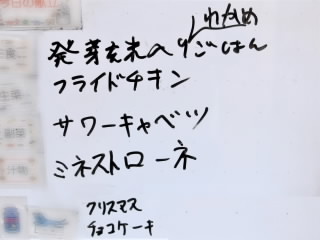 今日の献立
わかめ
発芽玄米入りごはん
フライドチキン
サワーキャベツ
ミネストローネ
クリスマス
チョコケーキ